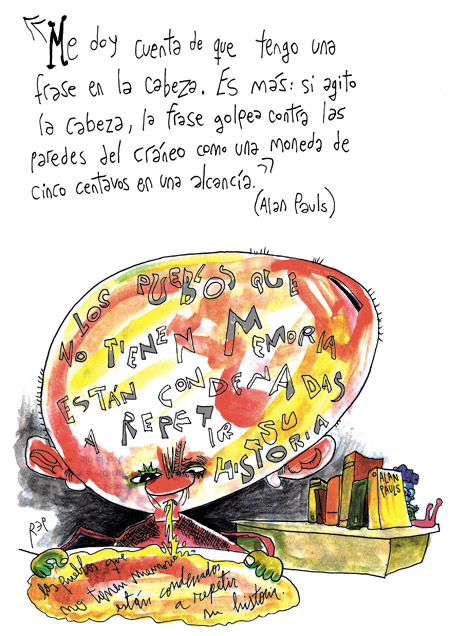 "Me doy cuenta de que tengo una
frase en la cabeza. Es más: si agito
la cabeza, la frase golpea contra las
paredes del cráneo como una moneda de
cinco centavos en una alcancía."
(Alan Pauls)
LOS PUEBLOS QUE
NO TIENEN MEMORIA
ESTÁN CONDENADAS
A REPETIR SU
HISTORIA
ALAN
PAULS
REP
los pueblos que
no tienen memoria
están condenados
a repetir
su historia.